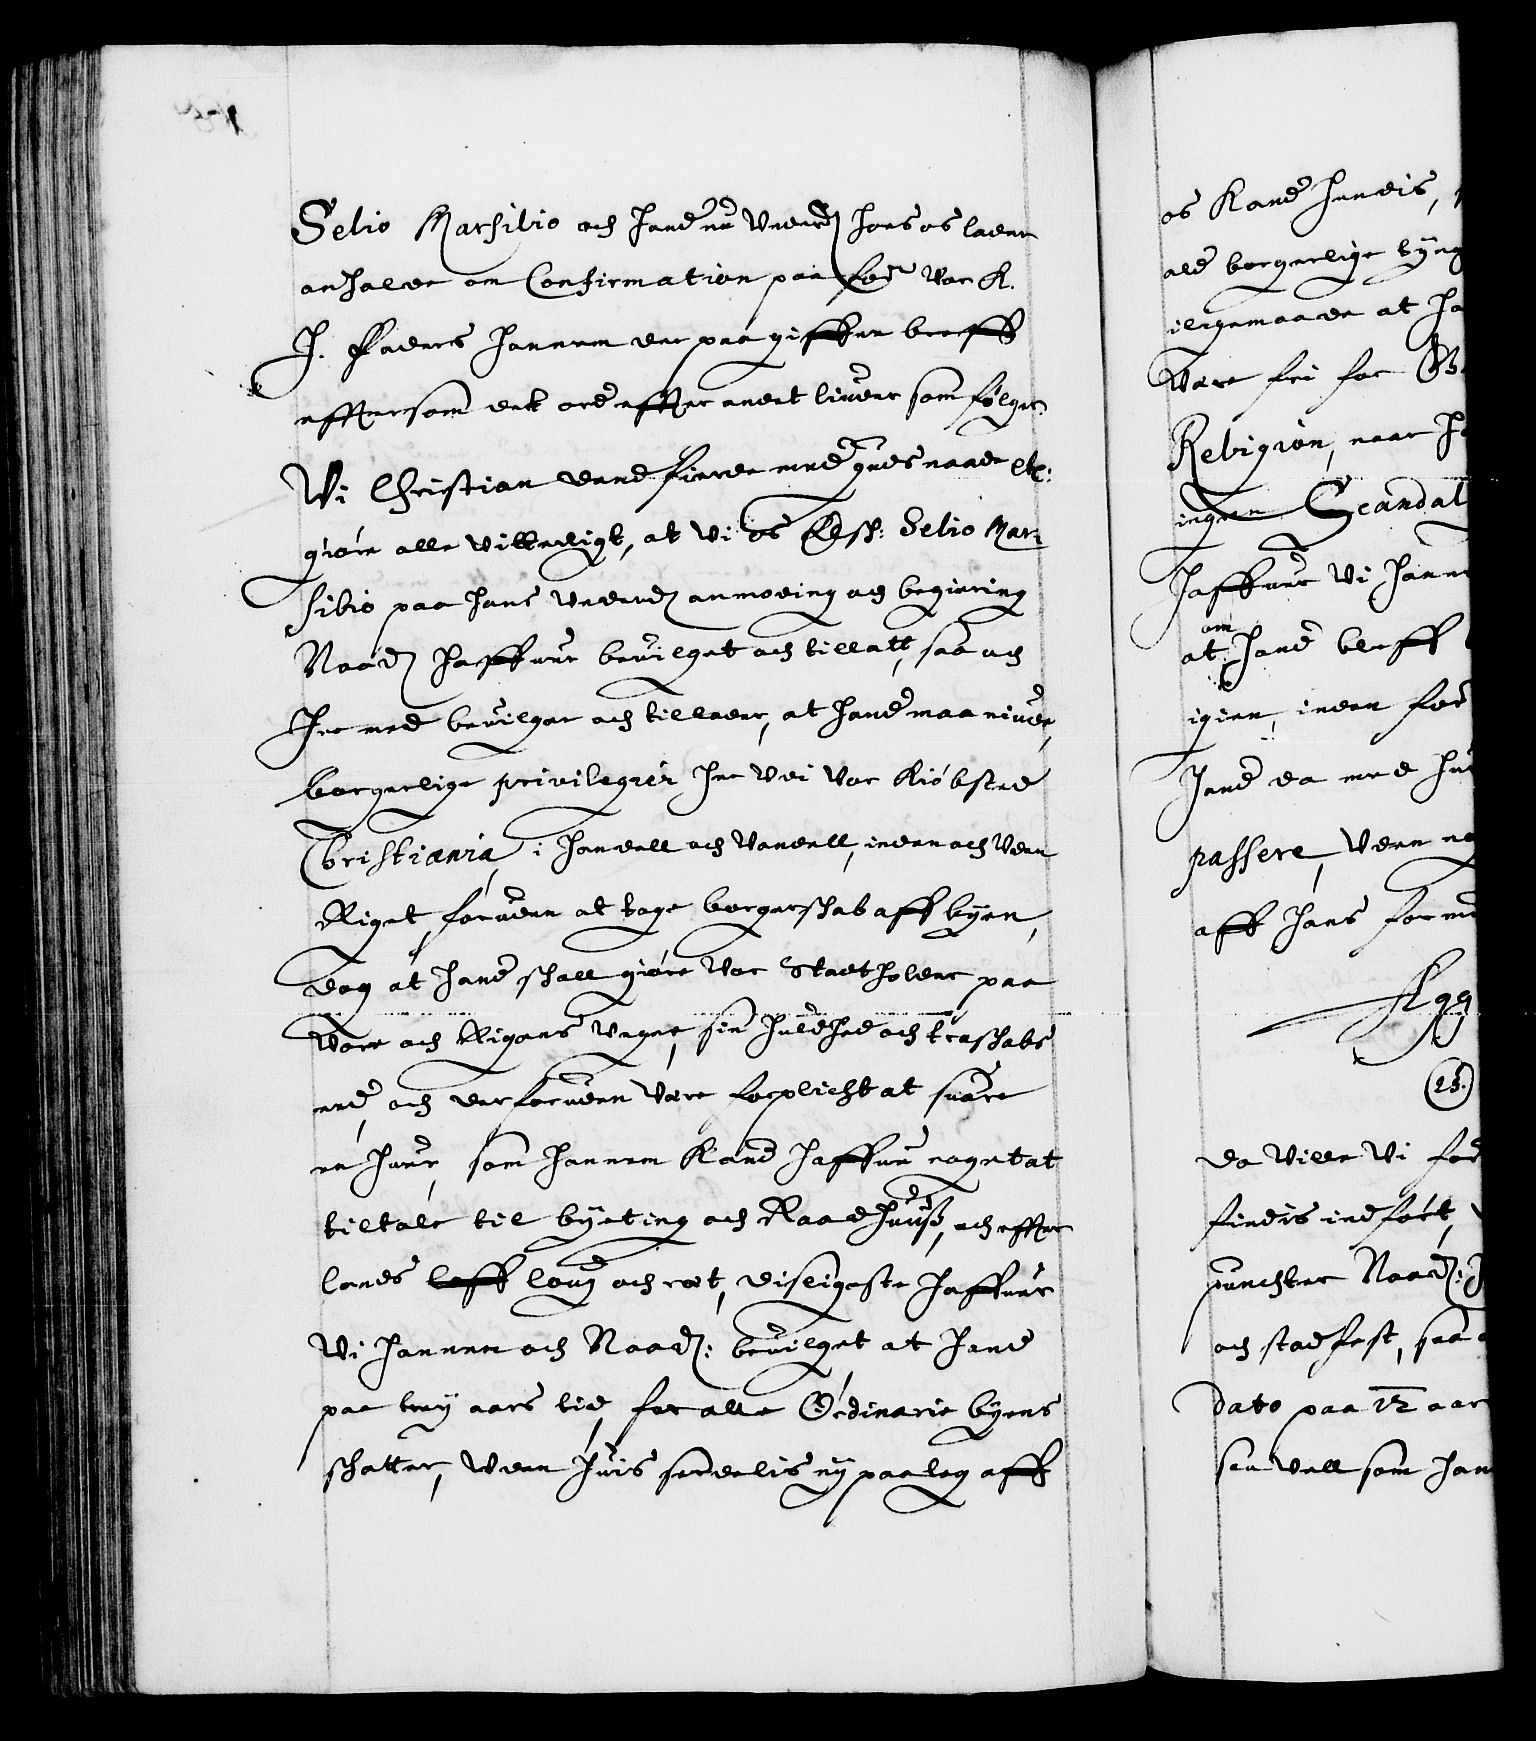 Selio Marsilio och hand nu Underd: hoes os lader
anholde om Confirmation paa for: Vor K.
H. Faders hannem der paa giffne breff
effttersom det ord effter andet liuder som følger.
Wi Christian dend fierde med guds naade etc:
giøre alle vitterligt, at Vi os Elsk: Selio Mar-
silio paa hans Underd: anmoding och begiering
Naad: haffuer beuilget och tillatt, saa och
her med beuilger och tillader, at hand maa niude,
borgerlige privilegier her Vdi Vor Kiøbsted
Christiania, i handell och Vandell, inden och Vden
Riget, foruden at tage borgerskab aff byen,
dog at hand skall giøre Vor Stadtholder paa
Vore och Rigens Vegne, sin huldhed och troskabs
eed, och der foruden Være forplicht at suare
en huer, som hannem Kand haffue noget at
tiltale til byeting och Raadhuuß, och effter
lands leff loug och ret, disligeste haffuer
Vi hannem och Naad: beuilget at hand
paa tuy aars tid, for alle Ordinarie byens
skatter, Vden huis serdelis ny paaleg aff
os Kand hendis,
ald borgerlige tyng
iligemaade at ha
Være fri for
Religion, naar h
ingen Scandal
haffuer Vi hann
om
at hand bleff
igien, inden for
hand da med hu
passere, Vden no
aff hans forme
(25.)
da Ville Vi for
findis indført,
puncter Naad:
och stadfest, saa
Dato paa 12 aar
saa Vell som han